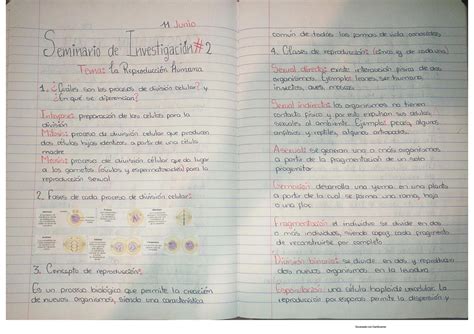 11 Junio
Seminario de Investigación #2
Tema: La Reproducción Humana
1. ¿Cuáles son los procesos de división celular? y
¿En qué se diferencian?
preparación de las células para la
división
Mitosis: proceso de división celular que producen
dos células hijas idénticas a partir de una célula
madre
Meiosis: proceso de división celular que da lugar
a los gametos (óvulos y espermatozoides) para la
reproducción sexual
2. Fases de cada proceso de división celular:
3. Concepto de reproducción:
Es un proceso biológico que permite la creación
de nuevos organismos, siendo una característica
común de todas las formas de vida conocidas
4. Clases de reproducción: (clima y de cada una)
Sexual directa: existe interacción física de dos
organismos. Ejemplos: leones, ser humano,
insectos, aves, etc.
Sexual indirecta: los organismos no tienen
contacto físico y por esto expulsan sus células
sexuales al ambiente. Ejemplos: peces, algunos
anfibios y reptiles, algunos artrópodos
Asexual: se generan uno o más organismos
a partir de la fragmentación de un solo
progenitor
Gemación: desarrolla una yema en una planta
a partir de la cual se forma una rama, hoja
o una flor
Fragmentación: el individuo se divide en dos
o más individuos, siendo capaz cada fragmento
de reconstruirse por completo
División binaria: se divide en dos y reproducen
dos nuevos organismos en la levadura
Esporulación: una célula haploide unicelular. La
reproducción por esporas permite la dispersión y